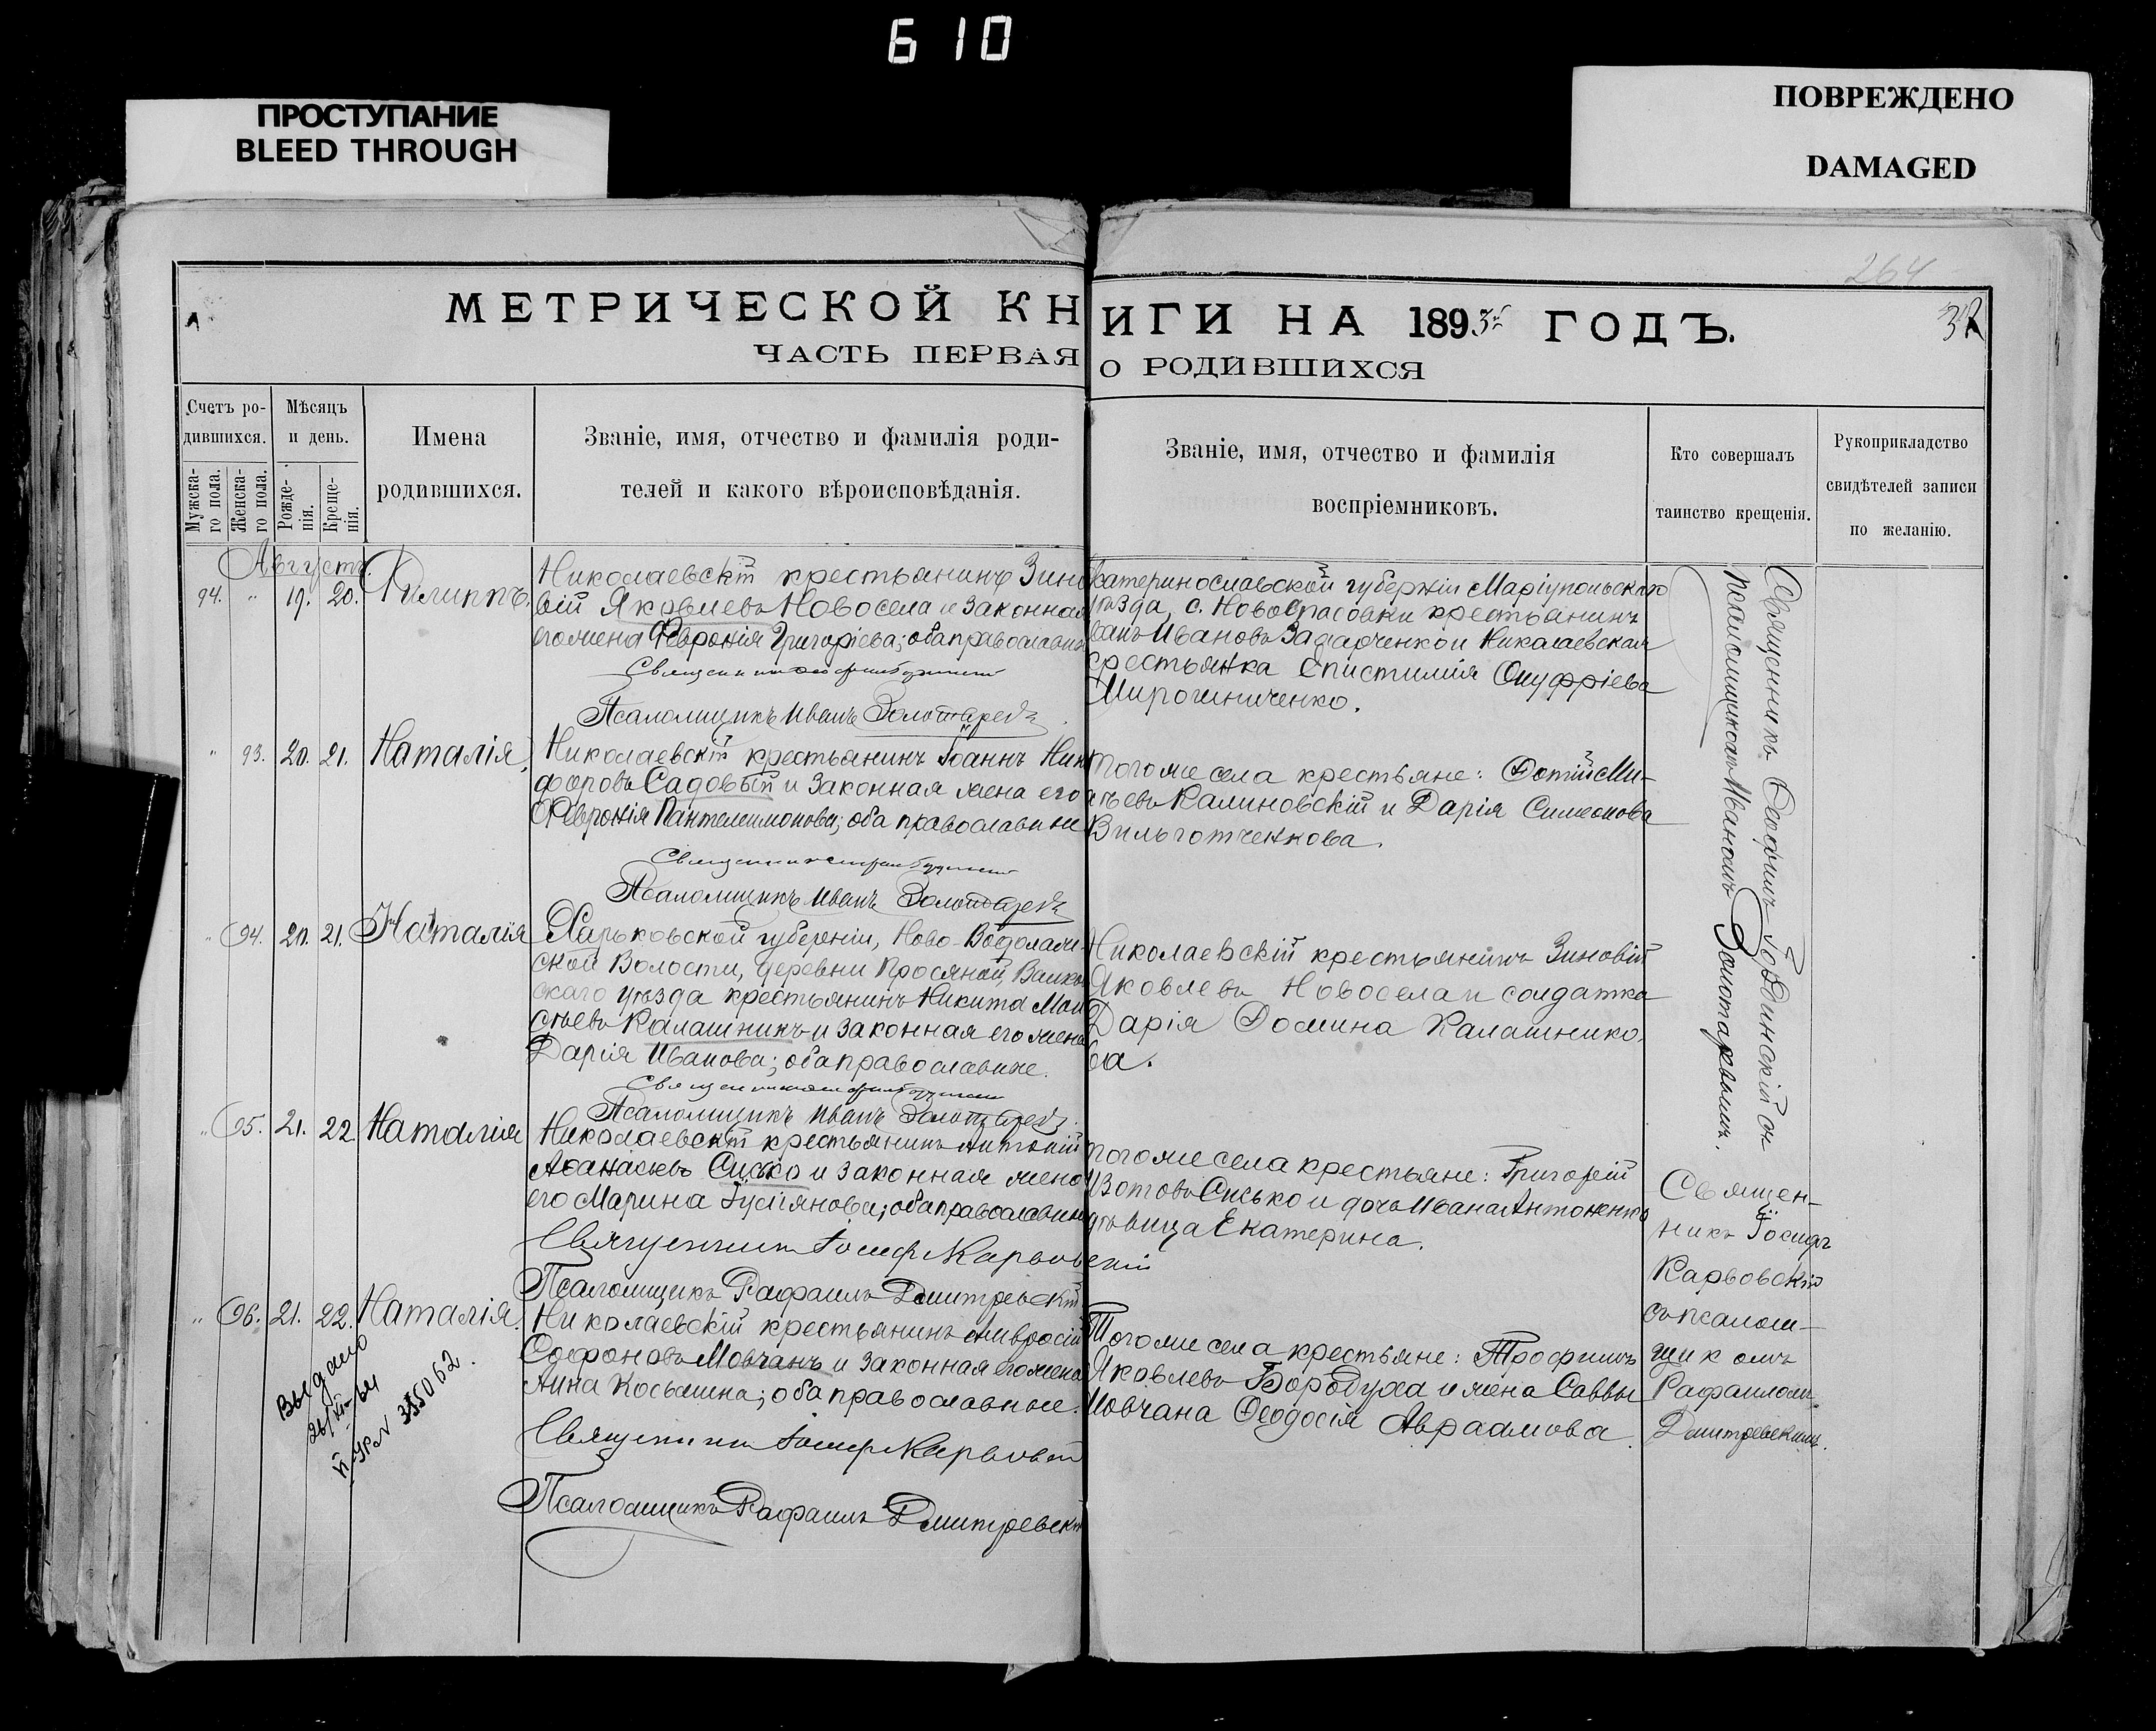 610
ПРОСТУПАНИЕ
BLEED THROUGH
ПОВРЕЖДЕНО
DAMAGED
264
МЕТРИЧЕСКОЙ КНИГИ НА 1893 ГОДЪ.
ЧАСТЬ ПЕРВАЯ О РОДИВШИХСЯ
Счетъ ро-
дившихся.
Мужска-
го пола.
Женска-
го пола.
Мѣсяцъ
и день.
Рожде-
нія.
Креще-
нія.
Имена
родившихся.
Званіе, имя, отчество и фамилія роди-
телей и какого вѣроисповѣданія.
Званіе, имя, отчество и фамилія
воспріемниковъ.
Кто совершалъ
таинство крещенія.
Рукоприкладство
свидѣтелей записи
по желанію.
Августъ.
94. " 19. 20. Филиппъ.
Николаевскій крестьянинъ Зино
вій Яковлевъ Новосела и законная
его жена Февронія Григорієва; оба православные
Псаломщикъ Иванъ Золотаревъ.
катеринославской губерніи Маріупольскаго
уѣзда, с. Новоспасовки крестьянинъ
Ивановъ и Николаевская
крестьянка Епистимія Онуфріева
Мирошниченко.
Священникъ Феофилъ съ
псаломщикомъ Иваномъ Золотаревымъ.
" 93. 20. 21. Наталія.
Николаевскій крестьянинъ Іоаннъ Ник
форовъ Садовый и законная жена его
Февронія Пантелеимонова; оба православные
Псаломщикъ Иванъ Золотаревъ
Того же села крестьяне: Фотій Ми-
Калиновскій и Дарія Симеонова
Вильготченкова.
" 94. 20. 21. Наталія
Харьковской губерніи, Ново-Водолаж-
ской Волости, деревни Просяной, Валков
скаго уѣзда крестьянинъ Никита Мои
сѣевъ Калашникъ и законная его жена
Дарія Иванова; оба православные.
Псаломщикъ Иванъ Золотаревъ.
Николаевскій крестьянинъ Зиновій
Яковлевъ Новосела и солдатка
Дарія Фомина Калашнико-
ва.
" 95. 21. 22. Наталія
Николаевскій крестьянинъ Антоній
Аѳанасьевъ Сисько и законная жена
его Марина оба православные
Священникъ Іосифъ Карвовскій
Псаломщикъ Рафаилъ Дмитревскій
Того же села крестьяне: Григорій
Изотовъ Сисько и дочь Ивана Антоненко
дѣвица Екатерина.
Священ-
никъ Іосифъ
Карвовскій
съ псалом-
щикомъ
Рафаиломъ
Дмитревскимъ.
" 96. 21. 22. Наталія.
Николаевскій крестьянинъ Амвросій
Софоновъ Мовчанъ и законная его жена
Анна Косьмина; оба православные.
Священникъ Іосифъ Карвовскій
Псаломщикъ Рафаилъ Дмитревскій
Того же села крестьяне: Трофимъ
Яковлевъ Бородуха и жена Саввы
Мовчана Феодосія Авраамова.
Выдано